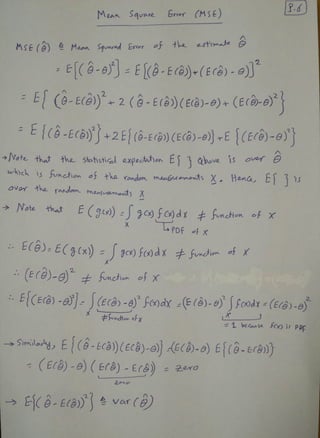 Mean Square Error (MSE)
P.6
MSE(θ̂) ≜ Mean Squared Error of the estimate θ̂
= E[(θ̂-θ)²] = E[(θ̂-E(θ̂))+(E(θ̂)-θ)]²
= E{(θ̂-E(θ̂))² + 2(θ̂-E(θ̂))(E(θ̂)-θ) + (E(θ̂)-θ)²}
= E{(θ̂-E(θ̂))²} + 2E{(θ̂-E(θ̂))(E(θ̂)-θ)} + E{(E(θ̂)-θ)²}
→ Note that the statistical expectation E{ } above is over θ̂
which is function of the random measurements X. Hence, E{ } is
over the random measurements X
→ Note that E(g(x)) = ∫ g(x) f(x) dx ≠ function of X
x
↳ PDF of X
∴ E(θ̂) = E(g(x)) = ∫ g(x) f(x) dx ≠ function of X
x
∴ (E(θ̂)-θ)² ≠ function of X
∴ E{(E(θ̂)-θ)²} = ∫ (E(θ̂)-θ)² f(x) dx = (E(θ̂)-θ)² ∫ f(x) dx = (E(θ̂)-θ)²
x ≠ function of x x
= 1 because f(x) is PDF
→ Similarly, E{(θ̂-E(θ̂))(E(θ̂)-θ)} = (E(θ̂)-θ) E{(θ̂-E(θ̂))}
= (E(θ̂)-θ) (E(θ̂)-E(θ̂)) = zero
zero
→ E{(θ̂-E(θ̂))²} ≜ var(θ̂)